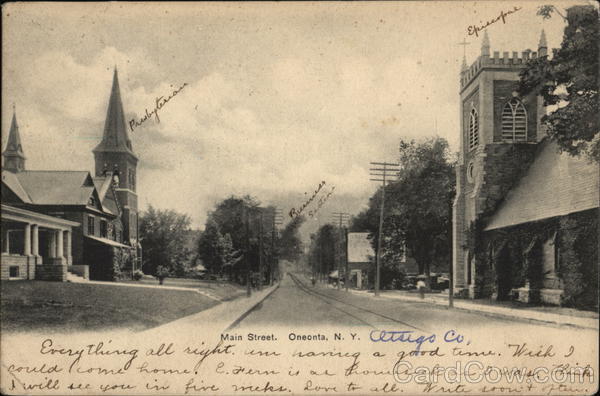 Episcopal
Presbyterian
Business
Section
Main Street. Oneonta, N. Y. Otsego Co
Everything all right. am having a good time. Wish I
could come home. C. Fern is as
I will see you in five weeks. Love to all. Write soon & often.
CardCow.com